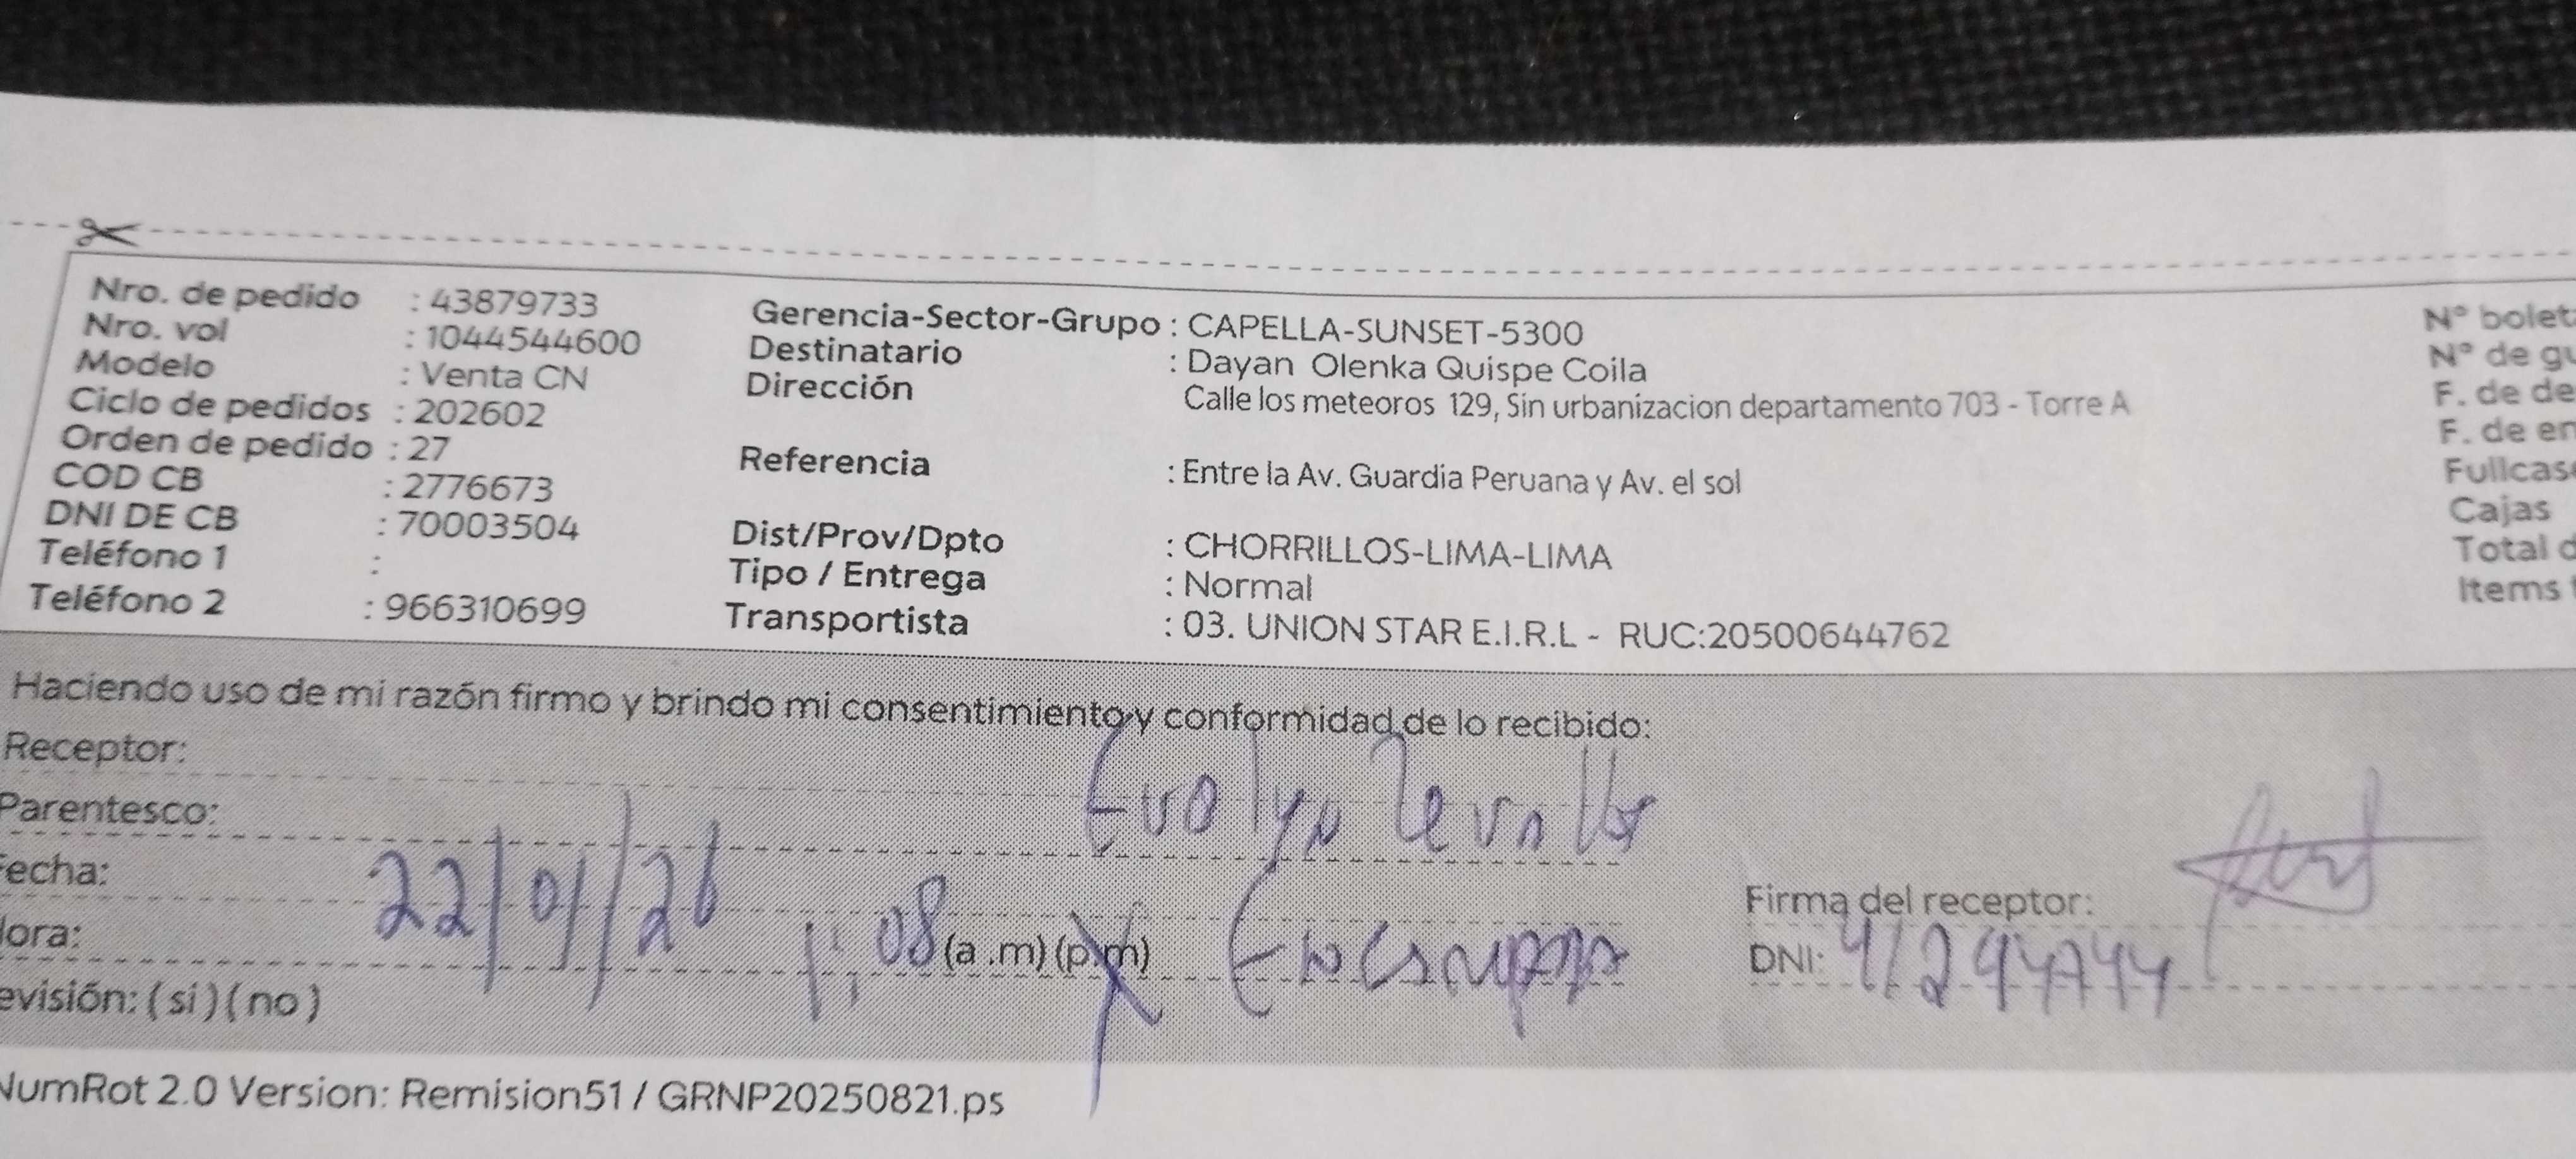 Nro. de pedido : 43879733
Nro. vol : 1044544600
Modelo : Venta CN
Ciclo de pedidos : 202602
Orden de pedido : 27
COD CB : 2776673
DNI DE CB : 70003504
Teléfono 1 :
Teléfono 2 : 966310699
Gerencia-Sector-Grupo : CAPELLA-SUNSET-5300
Destinatario : Dayan Olenka Quispe Coila
Dirección Calle los meteoros 129, Sin urbanizacion departamento 703 - Torre A
Referencia : Entre la Av. Guardia Peruana y Av. el sol
Dist/Prov/Dpto : CHORRILLOS-LIMA-LIMA
Tipo / Entrega : Normal
Transportista : 03. UNION STAR E.I.R.L - RUC:20500644762
N° bolet
N° de gu
F. de de
F. de en
Fullcas
Cajas
Total d
Items
Haciendo uso de mi razón firmo y brindo mi consentimiento y conformidad de lo recibido:
Receptor:
Parentesco: Evolyn
Fecha: 22/01/26
Hora: 1:08 (a .m) (p.m)
evisión: ( si ) ( no )
Firma del receptor:
DNI:
NumRot 2.0 Version: Remision51 / GRNP20250821.ps